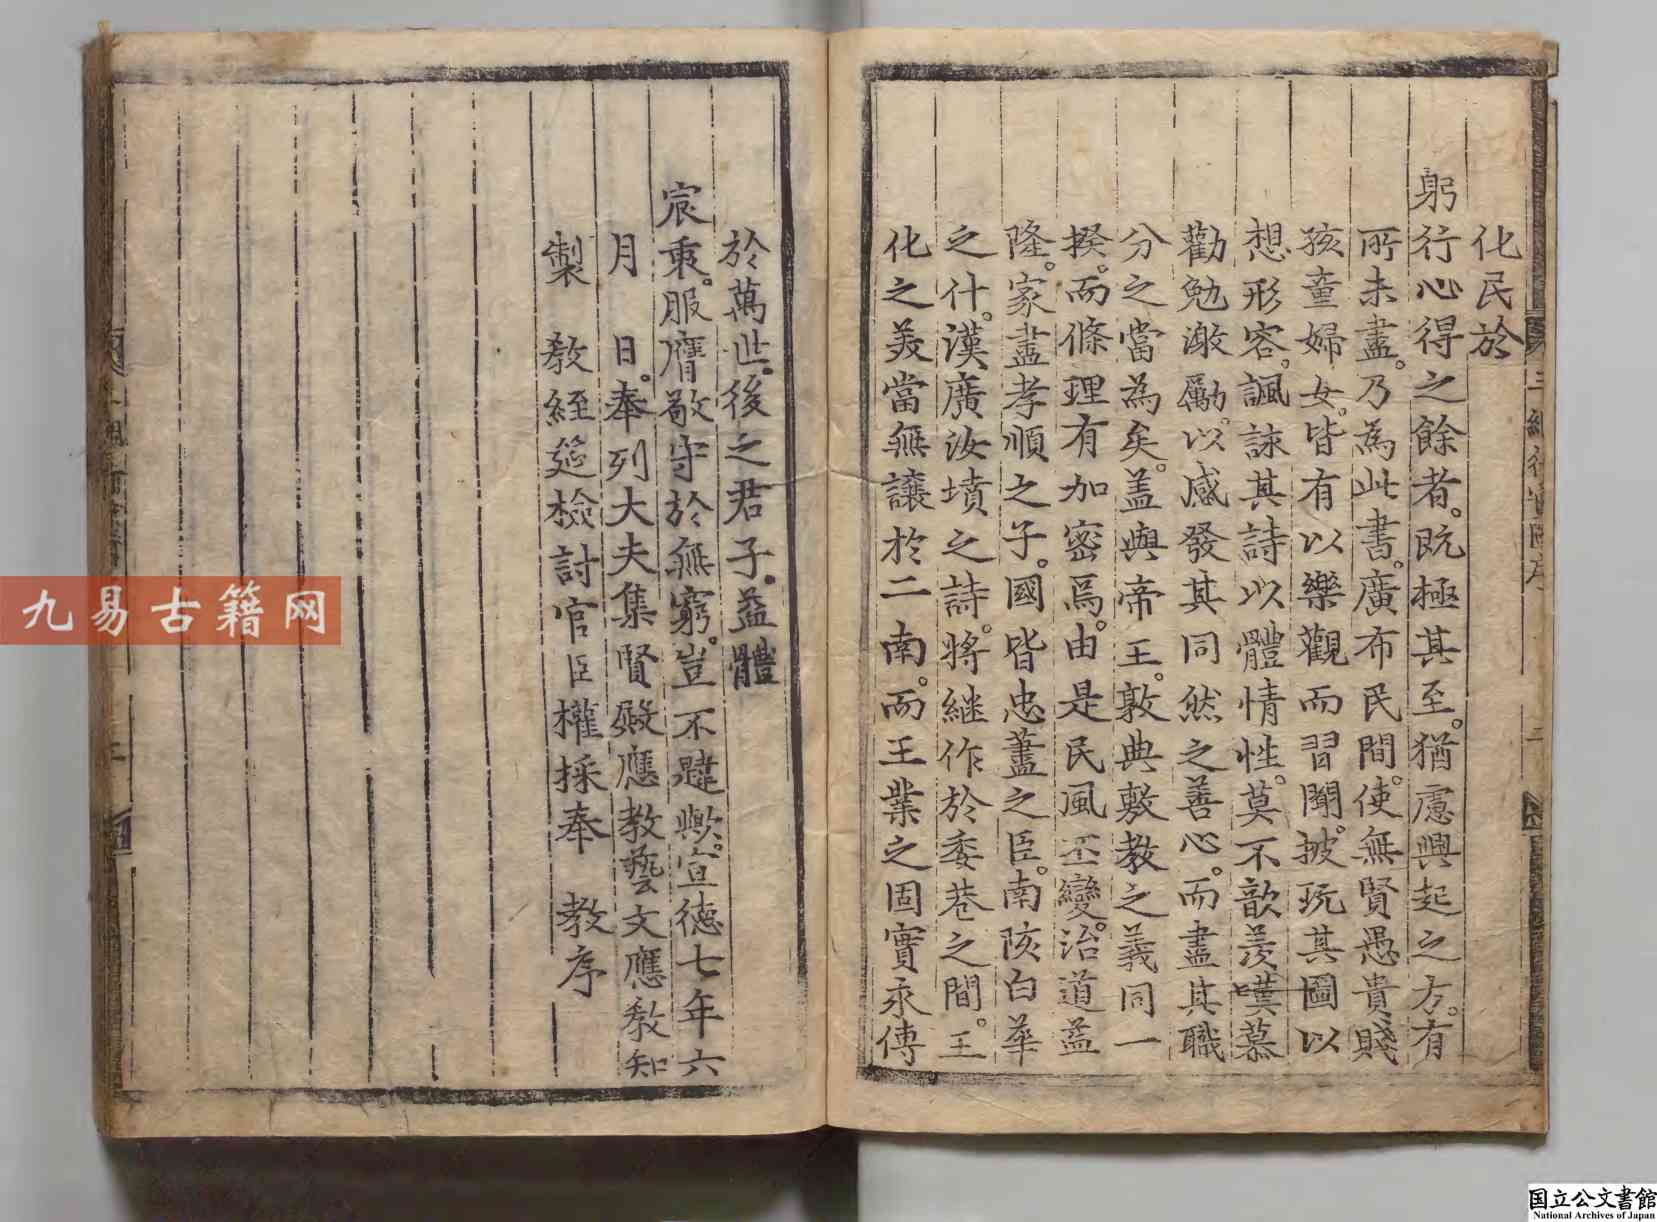 化民於
躬行心得之餘者。既極其至。猶慮興起之方。有
所未盡。乃為此書。廣布民間。使無賢愚貴賤
孩童婦女。皆有以樂觀而習聞。披玩其圖以
想形容。諷詠其詩以體情性。莫不歆羨嘆慕
勸勉激勵。以感發其同然之善心。而盡其職
分之當為矣。盖與帝王。敦典敷教之義同一
揆。而條理有加密焉。由是民風丕變。治道益
隆。家盡孝順之子。國皆忠藎之臣。南陔白華
之什。漢廣汝墳之詩。將継作於委巷之間。王
化之美當無譲於二南。而王業之固實永傳
於萬世。後之君子。益體
宸衷。服膺敬守於無窮。豈不韙歟。宣德七年六
月 日。奉列大夫集賢殿應教藝文應教知
製 教經筵檢討官臣權採奉 教序
三綱行實圖序
二
九易古籍网
国立公文書館
National Archives of Japan